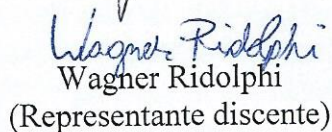 Wagner Ridolphi
Wagner Ridolphi
(Representante discente)